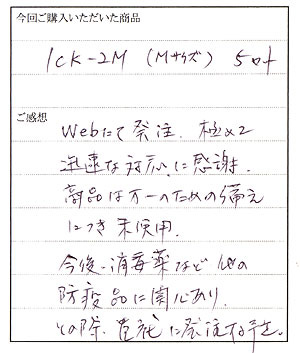 今回ご購入いただいた商品
ICK-2M (Mサイズ) 5コ
ご感想
Webにて発注. 極めて
迅速な対応に感謝.
商品は万一のための備え
につき未使用.
今後、消毒薬など他の
防疫品に関心あり.
その際、貴社に発注する予定.